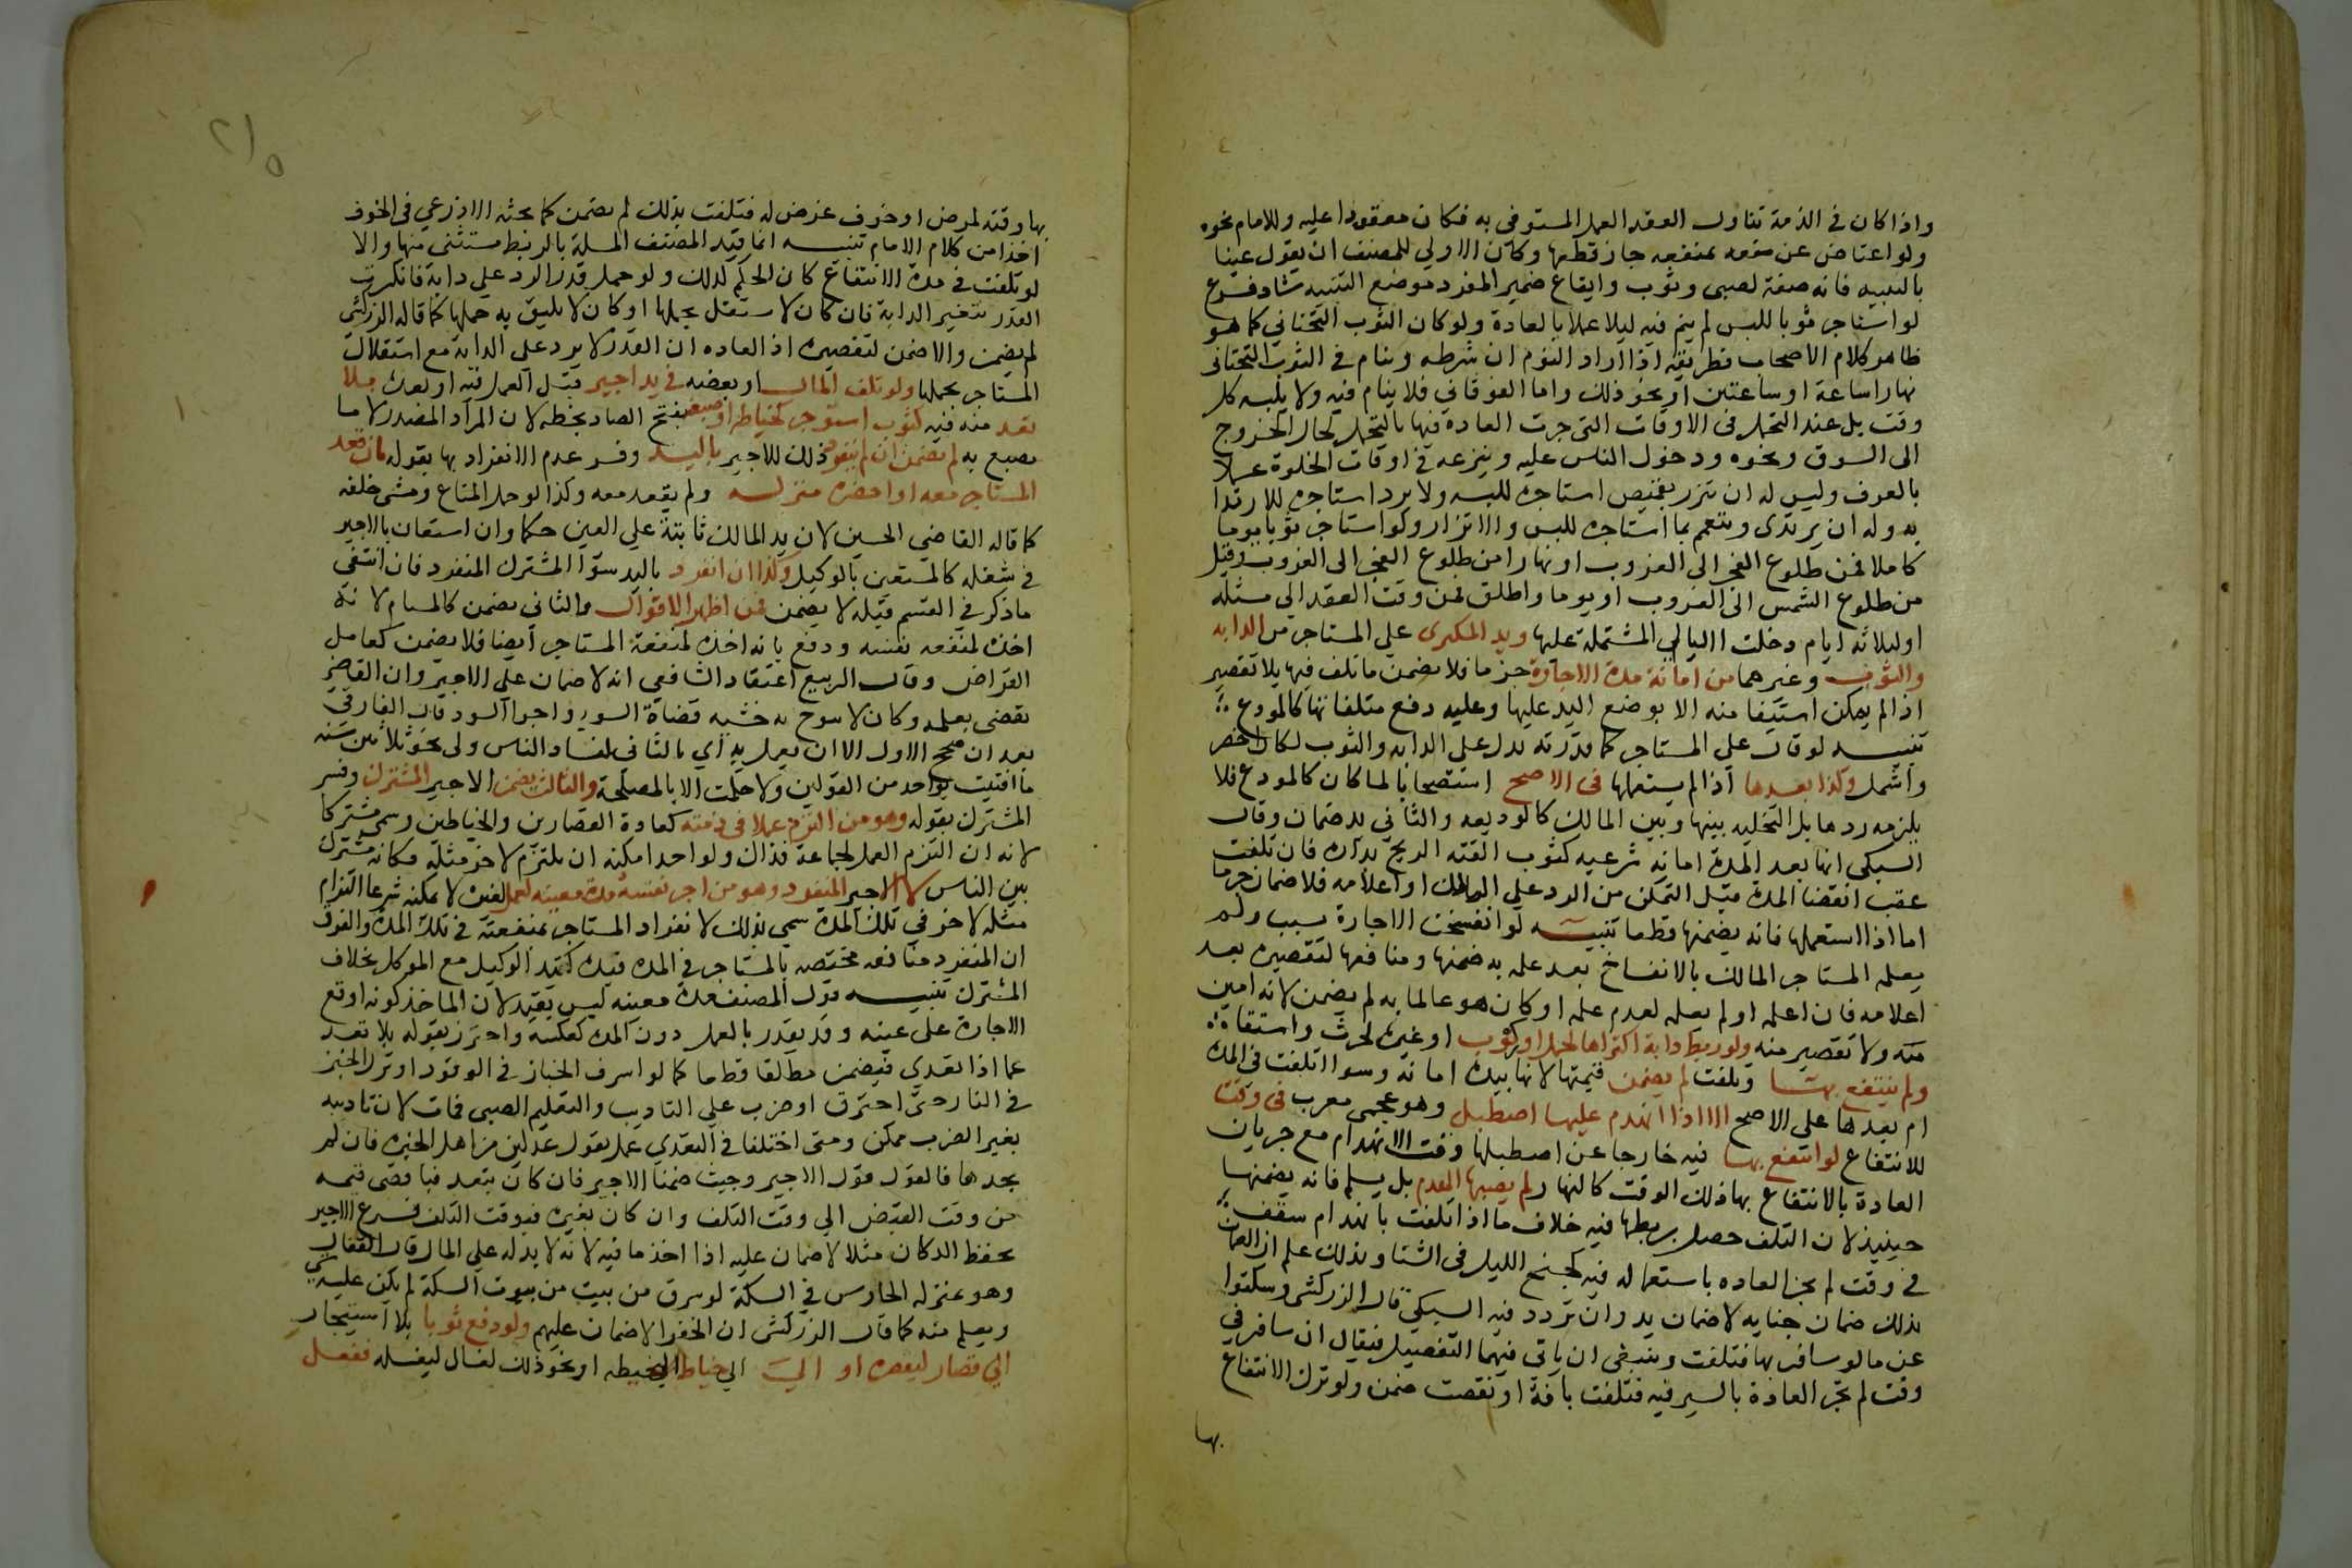 واذا كان في الذمة تناول العقد العمل المستوفى به فكان معقودا عليه وللامام نحوه
ولو اعتاض عن منفعه بمنفعه جاز قطعا وكان الاولي للمصنف ان يقول عينا
بالتثنيه فانه صفة لصبي وثوب وايقاع ضمير المفرد موضع التثنيه شاد فرع
لو استاجر ثوبا للبس لم ينم فيه ليلا عملا بالعادة ولو كان الثوب التحتاني كما هو
ظاهر كلام الاصحاب فطريقه اذا اراد النوم ان شرطه وينام في الثوب التحتاني
نهارا ساعة او ساعتين او نحو ذلك واما الفوقاني فلا ينام فيه ولا يلبسه كل
وقت بل عند التجمل في الاوقات التي جرت العادة فيها بالتجمل كحال الخروج
الى السوق ونحوه ودخول الناس عليه وينزعه في اوقات الخلوة عملا
بالعرف وليس له ان يتزر بقميص استاجره للبسه ولا برد استاجره للارتدا
به وله ان يرتدى ويتعمم بما استاجره للبس والاتزار ولو استاجر ثوبا يوما
كاملا فمن طلوع الفجر الى الغروب او نهارا من طلوع الفجر الى الغروب وقيل
من طلوع الشمس الى الغروب او يوما واطلق فمن وقت العقد الي مثله
او ثلاثه ايام دخلت الليالي المشتملة عليها ويد المكترى علي المستاجر من الدابه
والثوب وغيرهما من امانة مدة الاجارة جزما فلا يضمن ما تلف فيها بلا تقصير
اذ لم يمكن استيفا منه الا بوضع اليد عليها وعليه دفع متلفاتها كالمودع
تنبيه لو قال على المستاجر كما قدرته بدل على الدابه والثوب لكان اخصر
واشمل وكذا بعدها اذا لم يستعملها في الاصح استصحابا لما كان كالمودع فلا
يلزمه ردها بل التخليه بينها وبين المالك كالوديعه والثاني يد ضمان وقال
السبكى انها بعد المدة امانه شرعيه كثوب القته الريح بداره فان تلفت
عقب انقضا المدة قبل التمكن من الرد على المالك او اعلامه فلا ضمان جزما
اما اذا استعملها فانه يضمنها قطعا تنبيه لو انفسخت الاجارة بسبب ولم
يعلم المستاجر المالك بالانفساخ بعد علمه به ضمنها ومنافعها لتقصيره بعد
اعلامه فان اعلمه او لم يعلمه لعدم علمه او كان هو عالما به لم يضمن لانه امين
منه ولا تقصير منه ولو ربط دابة اكتراها لحمل او ركوب او غيره كحرث واستقاة
ولم ينتفع بها وتلفت لم يضمن قيمتها لانها بيده امانه وسوا اتلفت في المدة
ام بعدها على الاصح الا اذا انهدم عليها اصطبل وهو عجمى معرب في وقت
للانتفاع لو انتفع بها فيه خارجا عن اصطبلها وقت الانهدام مع جريان
العادة بالانتفاع بها ذلك الوقت كالنهار لم يصبها الهدم بل يسلم فانه يضمنها
حينيذ لان التلف حصل بربطها فيه خلاف ما اذا تلفت بانهدام سقف
في وقت لم تجر العاده باستعماله فيه كجنح الليل في الشتا وبذلك علم ان الضمان
بذلك ضمان جنايه لا ضمان يد وان تردد فيه السبكي قال الزركشى وسكتوا
عن ما لو سافر بها فتلفت وينبغى ان ياتي فيهما التفصيل فيقال ان سافر في
وقت لم تجر العادة بالسير فيه فتلفت بافة او نقصت ضمن ولو ترك الانتفاع
بها
٢١٥
بها وقته لمرض او خوف عرض له فتلفت بذلك لم يضمن كما بحثه الاذرعي في الخوف
اخذا من كلام الامام تنبيه انما قيد المصنف المسلة بالربط مستثنى منها والا
لو تلفت في مدة الانتفاع كان الحكم كذلك ولو حمل قدر الرد علي دابة فانكرت
القدر بتخير الدابة فان كان لا يستقل بحملها او كان لا يليق به حملها كما قاله الزركشي
لم يضمن والا ضمن لتقصيره اذ العاده ان القدر لا يرد علي الدابة مع استقلال
المستاجر بحملها ولو تلف المال او بعضه في يد اجير قبل العمل فيه او بعده بلا
تعد منه فيه كثوب استوجر لخياطه او صبغه بفتح الصاد بخطه لان المراد المصدر لا ما
يصبغ به لم يضمن ان لم ينفرد ذلك الاجير باليد وفسر عدم الانفراد بها بقوله بان قعد
المستاجر معه او احضره منزله ولم يقعد معه وكذا لو حمل المتاع ومشى خلفه
كما قاله القاضي الحسين لان يد المالك ثابتة علي العين حكما وان استعان بالاجير
في شغله كالمستعين بالوكيل وكذا ان انفرد باليد سوا المشترك المنفرد فان انتفى
ما ذكر في القسم قبله لا يضمن في اظهر الاقوال والثاني يضمن كالمسام لانه
اخذ لمنفعه نفسه ودفع بانه اخذه لمنفعة المستاجر ايضا فلا يضمن كعامل
القراض وقال الربيع اعتقاد الشافعي انه لا ضمان علي الاجير وان القاضي
يقضى بعلمه وكان لا يبوح به خشيه قضاة السوء واجرا السوء قال الفارقي
بعد ان صحح الاول الا ان يعمل به اي بالثاني لفساد الناس ولى نحو ثلاثين سنه
ما افتيت بواحد من القولين ولا حكمت الا بالمصلحة والثالث يضمن الاجير المشترك وفسر
المشترك بقوله وهو من التزم عملا في ذمته كعادة القصارين والخياطين وسمى مشتركا
لانه ان التزم العمل لجماعة فذاك ولواحد امكنه ان يلتزم لاخر مثله فكانه مشترك
بين الناس لا الاجير المنفرد وهو من اجر نفسه مدة معينه لعمل لغيره لا يمكنه شرعا التزام
مثله لاخر في تلك المدة سمي بذلك لانفراد المستاجر بمنفعته في تلك المدة والفرق
ان المنفرد منافعه مختصه بالمستاجر في المدة فيده كيد الوكيل مع الموكل بخلاف
المشترك تنبيه قول المصنف مدة معينه ليس بقيد لان الماخذ كونه اوقع
الاجارة على عينه وقد يقدر بالعمل دون المدة كعكسه واحترز بقوله بلا تعد
عما اذا تعدي فيضمن مطلقا قطعا كما لو اسرف الخباز في الوقود او ترك الخبز
في النار حتى احترق او ضرب علي التاديب والتعليم الصبي فمات لان تاديبه
بغير الضرب ممكن ومتى اختلفا في التعدي عمل بقول عدلين من اهل الخبره فان لم
يجدهما فالقول قول الاجير وحيث ضمنا الاجير فان كان بتعد فباقصى قيمه
من وقت القبض الي وقت التلف وان كان بغيره فبوقت التلف فرع الاجير
بحفظ الدكان مثلا لا ضمان عليه اذا اخذ ما فيه لانه لا يد له علي المال قال القفال
وهو بمنزله الحارس في السكة لو سرق من بيت من بيوت السكة لم يكن عليه شي
ويعلم منه كما قال الزركشى ان الخفرا لا ضمان عليهم ولو دفع ثوبا بلا استيجار
الي قصار ليقصره او الي خياط ليخيطه او نحو ذلك لغسال ليغسله ففعل